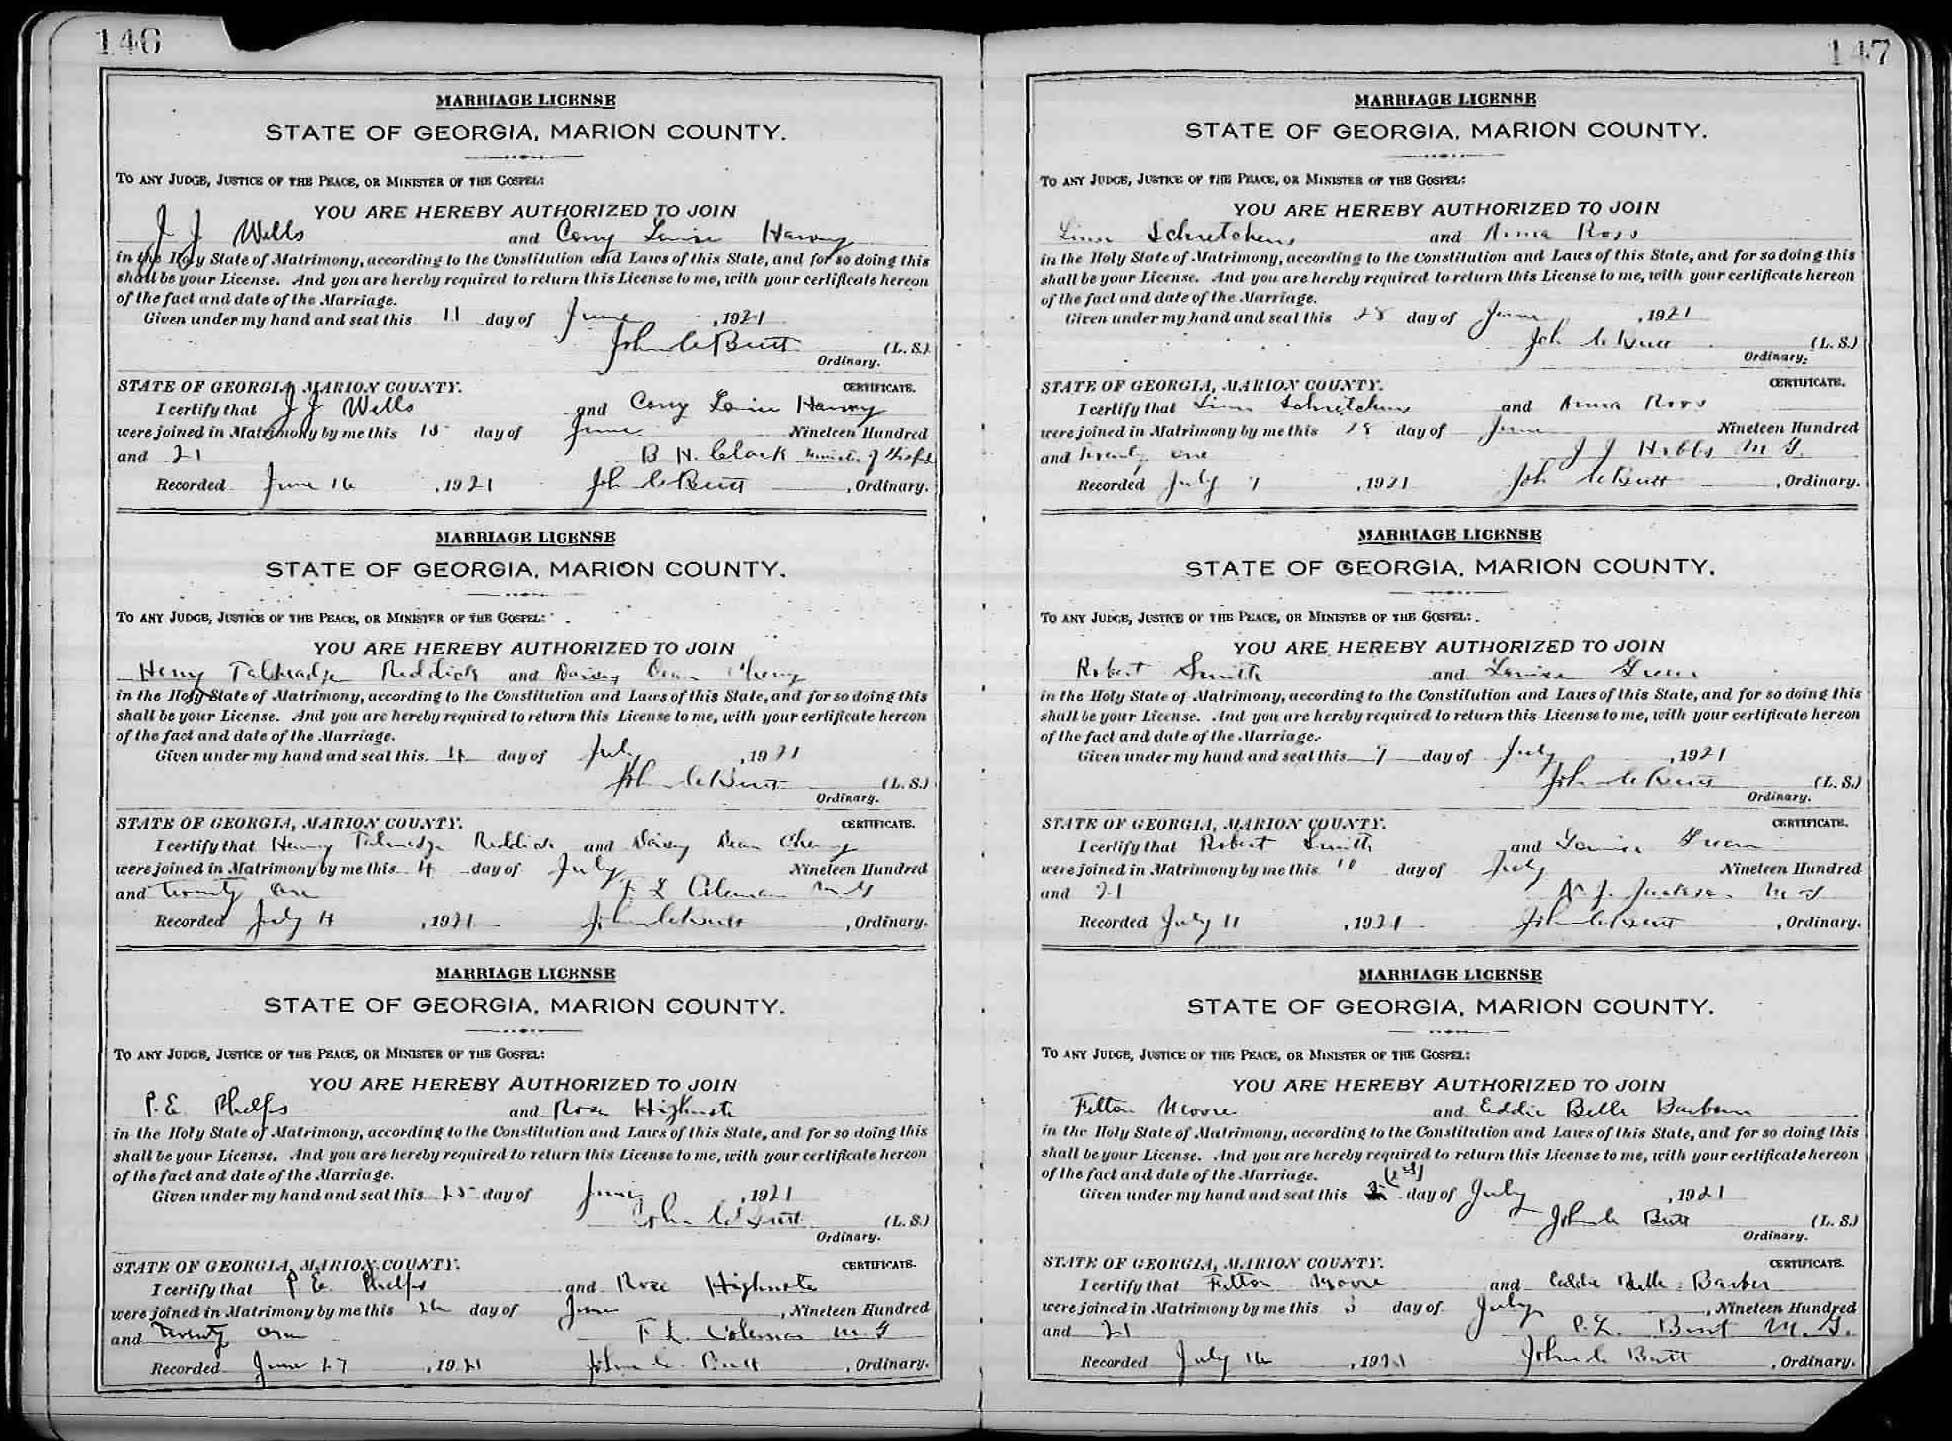 146
MARRIAGE LICENSE
STATE OF GEORGIA, MARION COUNTY.
TO ANY JUDGE, JUSTICE OF THE PEACE, OR MINISTER OF THE GOSPEL:
YOU ARE HEREBY AUTHORIZED TO JOIN
J J Wells and Louise
in the Holy State of Matrimony, according to the Constitution and Laws of this State, and for so doing this
shall be your License. And you are hereby required to return this License to me, with your certificate hereon
of the fact and date of the Marriage.
Given under my hand and seal this 11 day of June, 1921
John C Butt (L. S.)
Ordinary.
STATE OF GEORGIA, MARION COUNTY. CERTIFICATE.
I certify that J J Wells and Louise
were joined in Matrimony by me this 15 day of June Nineteen Hundred
and 21 B H. Clark
Recorded June 16, 1921 John C Butt, Ordinary.
MARRIAGE LICENSE
STATE OF GEORGIA, MARION COUNTY.
TO ANY JUDGE, JUSTICE OF THE PEACE, OR MINISTER OF THE GOSPEL:
YOU ARE HEREBY AUTHORIZED TO JOIN
Henry Reddick and Daisy Dean
in the Holy State of Matrimony, according to the Constitution and Laws of this State, and for so doing this
shall be your License. And you are hereby required to return this License to me, with your certificate hereon
of the fact and date of the Marriage.
Given under my hand and seal this 4 day of July, 1921
John C Butt (L. S.)
Ordinary.
STATE OF GEORGIA, MARION COUNTY. CERTIFICATE.
I certify that Henry Reddick and Daisy Dean
were joined in Matrimony by me this 4 day of July Nineteen Hundred
and twenty one F L Coleman M G
Recorded July 4, 1921 John C Butt, Ordinary.
MARRIAGE LICENSE
STATE OF GEORGIA, MARION COUNTY.
TO ANY JUDGE, JUSTICE OF THE PEACE, OR MINISTER OF THE GOSPEL:
YOU ARE HEREBY AUTHORIZED TO JOIN
P. E. Phelps and Rosa
in the Holy State of Matrimony, according to the Constitution and Laws of this State, and for so doing this
shall be your License. And you are hereby required to return this License to me, with your certificate hereon
of the fact and date of the Marriage.
Given under my hand and seal this 25 day of June, 1921
John C Butt (L. S.)
Ordinary.
STATE OF GEORGIA, MARION COUNTY. CERTIFICATE.
I certify that P E. Phelps and Rosa
were joined in Matrimony by me this 26 day of June, Nineteen Hundred
and twenty one F. L. Coleman M G
Recorded June 27, 1921 John C. Butt, Ordinary.
147
MARRIAGE LICENSE
STATE OF GEORGIA, MARION COUNTY.
TO ANY JUDGE, JUSTICE OF THE PEACE, OR MINISTER OF THE GOSPEL:
YOU ARE HEREBY AUTHORIZED TO JOIN
and Anna Ross
in the Holy State of Matrimony, according to the Constitution and Laws of this State, and for so doing this
shall be your License. And you are hereby required to return this License to me, with your certificate hereon
of the fact and date of the Marriage.
Given under my hand and seal this 28 day of June, 1921
John C Butt (L. S.)
Ordinary.
STATE OF GEORGIA, MARION COUNTY. CERTIFICATE.
I certify that and Anna Ross
were joined in Matrimony by me this 28 day of June Nineteen Hundred
and twenty one J J Hobbs M G.
Recorded July 7, 1921 John C Butt, Ordinary.
MARRIAGE LICENSE
STATE OF GEORGIA, MARION COUNTY.
TO ANY JUDGE, JUSTICE OF THE PEACE, OR MINISTER OF THE GOSPEL:
YOU ARE HEREBY AUTHORIZED TO JOIN
Robert Smith and Louise Green
in the Holy State of Matrimony, according to the Constitution and Laws of this State, and for so doing this
shall be your License. And you are hereby required to return this License to me, with your certificate hereon
of the fact and date of the Marriage.
Given under my hand and seal this 9 day of July, 1921
John C Butt (L. S.)
Ordinary.
STATE OF GEORGIA, MARION COUNTY. CERTIFICATE.
I certify that Robert Smith and Louise Green
were joined in Matrimony by me this 10 day of July Nineteen Hundred
and 21 J. Jackson M G
Recorded July 11, 1921 John C Butt, Ordinary.
MARRIAGE LICENSE
STATE OF GEORGIA, MARION COUNTY.
TO ANY JUDGE, JUSTICE OF THE PEACE, OR MINISTER OF THE GOSPEL:
YOU ARE HEREBY AUTHORIZED TO JOIN
Felton Moore and Eddie Belle
in the Holy State of Matrimony, according to the Constitution and Laws of this State, and for so doing this
shall be your License. And you are hereby required to return this License to me, with your certificate hereon
of the fact and date of the Marriage.
Given under my hand and seal this (1st) day of July, 1921
John C Butt (L. S.)
Ordinary.
STATE OF GEORGIA, MARION COUNTY. CERTIFICATE.
I certify that Felton Moore and Eddie Belle Barber
were joined in Matrimony by me this 3 day of July, Nineteen Hundred
and 21 M. G.
Recorded July 16, 1921 John C Butt, Ordinary.